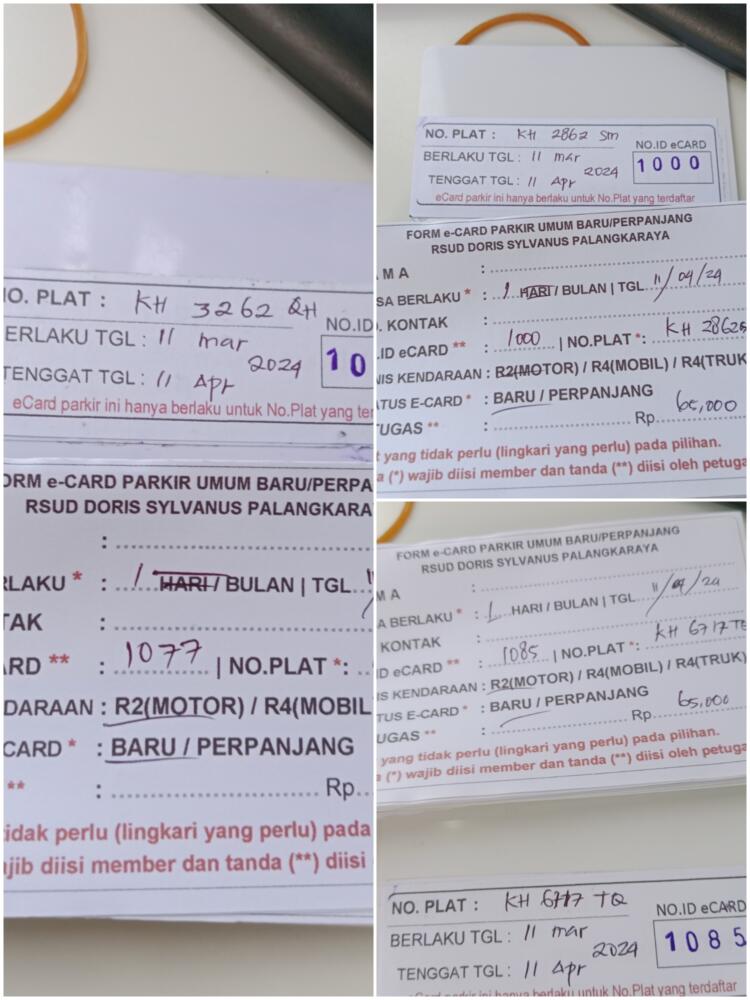 NO. PLAT : KH 3262 QH
NO.ID
ERLAKU TGL : 11 mar
10
TENGGAT TGL : 11 Apr 2024
eCard parkir ini hanya berlaku untuk No.Plat yang ter
ORM e-CARD PARKIR UMUM BARU/PERPA
RSUD DORIS SYLVANUS PALANGKARA
:
RLAKU * : 1 HARI / BULAN | TGL
TAK :
RD ** : 1077 | NO.PLAT *:
DARAAN : R2(MOTOR) / R4(MOBIL
CARD * : BARU / PERPANJANG
** : Rp
idak perlu (lingkari yang perlu) pada
ajib diisi member dan tanda (**) diisi
NO. PLAT : KH 2862 Sm
NO.ID eCARD
BERLAKU TGL : 11 mar
1000
TENGGAT TGL : 11 Apr 2024
eCard parkir ini hanya berlaku untuk No.Plat yang terdaftar
FORM e-CARD PARKIR UMUM BARU/PERPANJANG
RSUD DORIS SYLVANUS PALANGKARAYA
M A :
SA BERLAKU * : 1 HARI / BULAN | TGL 11/04/24
. KONTAK :
.ID eCARD ** : 1000 | NO.PLAT *: KH 2862
NIS KENDARAAN : R2(MOTOR) / R4(MOBIL) / R4(TRUK
ATUS E-CARD * : BARU / PERPANJANG
TUGAS ** : Rp 65,000
t yang tidak perlu (lingkari yang perlu) pada pilihan.
a (*) wajib diisi member dan tanda (**) diisi oleh petuga
FORM e-CARD PARKIR UMUM BARU/PERPANJANG
RSUD DORIS SYLVANUS PALANGKARAYA
M A :
A BERLAKU * : 1 HARI / BULAN | TGL 11/04/24
KONTAK :
D eCARD ** : 1085 | NO.PLAT *: KH 6717 TQ
IS KENDARAAN : R2(MOTOR) / R4(MOBIL) / R4(TRUK)
TUS E-CARD * : BARU / PERPANJANG
UGAS ** : Rp 65,000
yang tidak perlu (lingkari yang perlu) pada pilihan.
a (*) wajib diisi member dan tanda (**) diisi oleh petuga
NO. PLAT : KH 6717 TQ
NO.ID eCARD
BERLAKU TGL : 11 mar
1085
TENGGAT TGL : 11 Apr 2024
eCard parkir ini hanya berlaku untuk No.Plat yang terdaftar